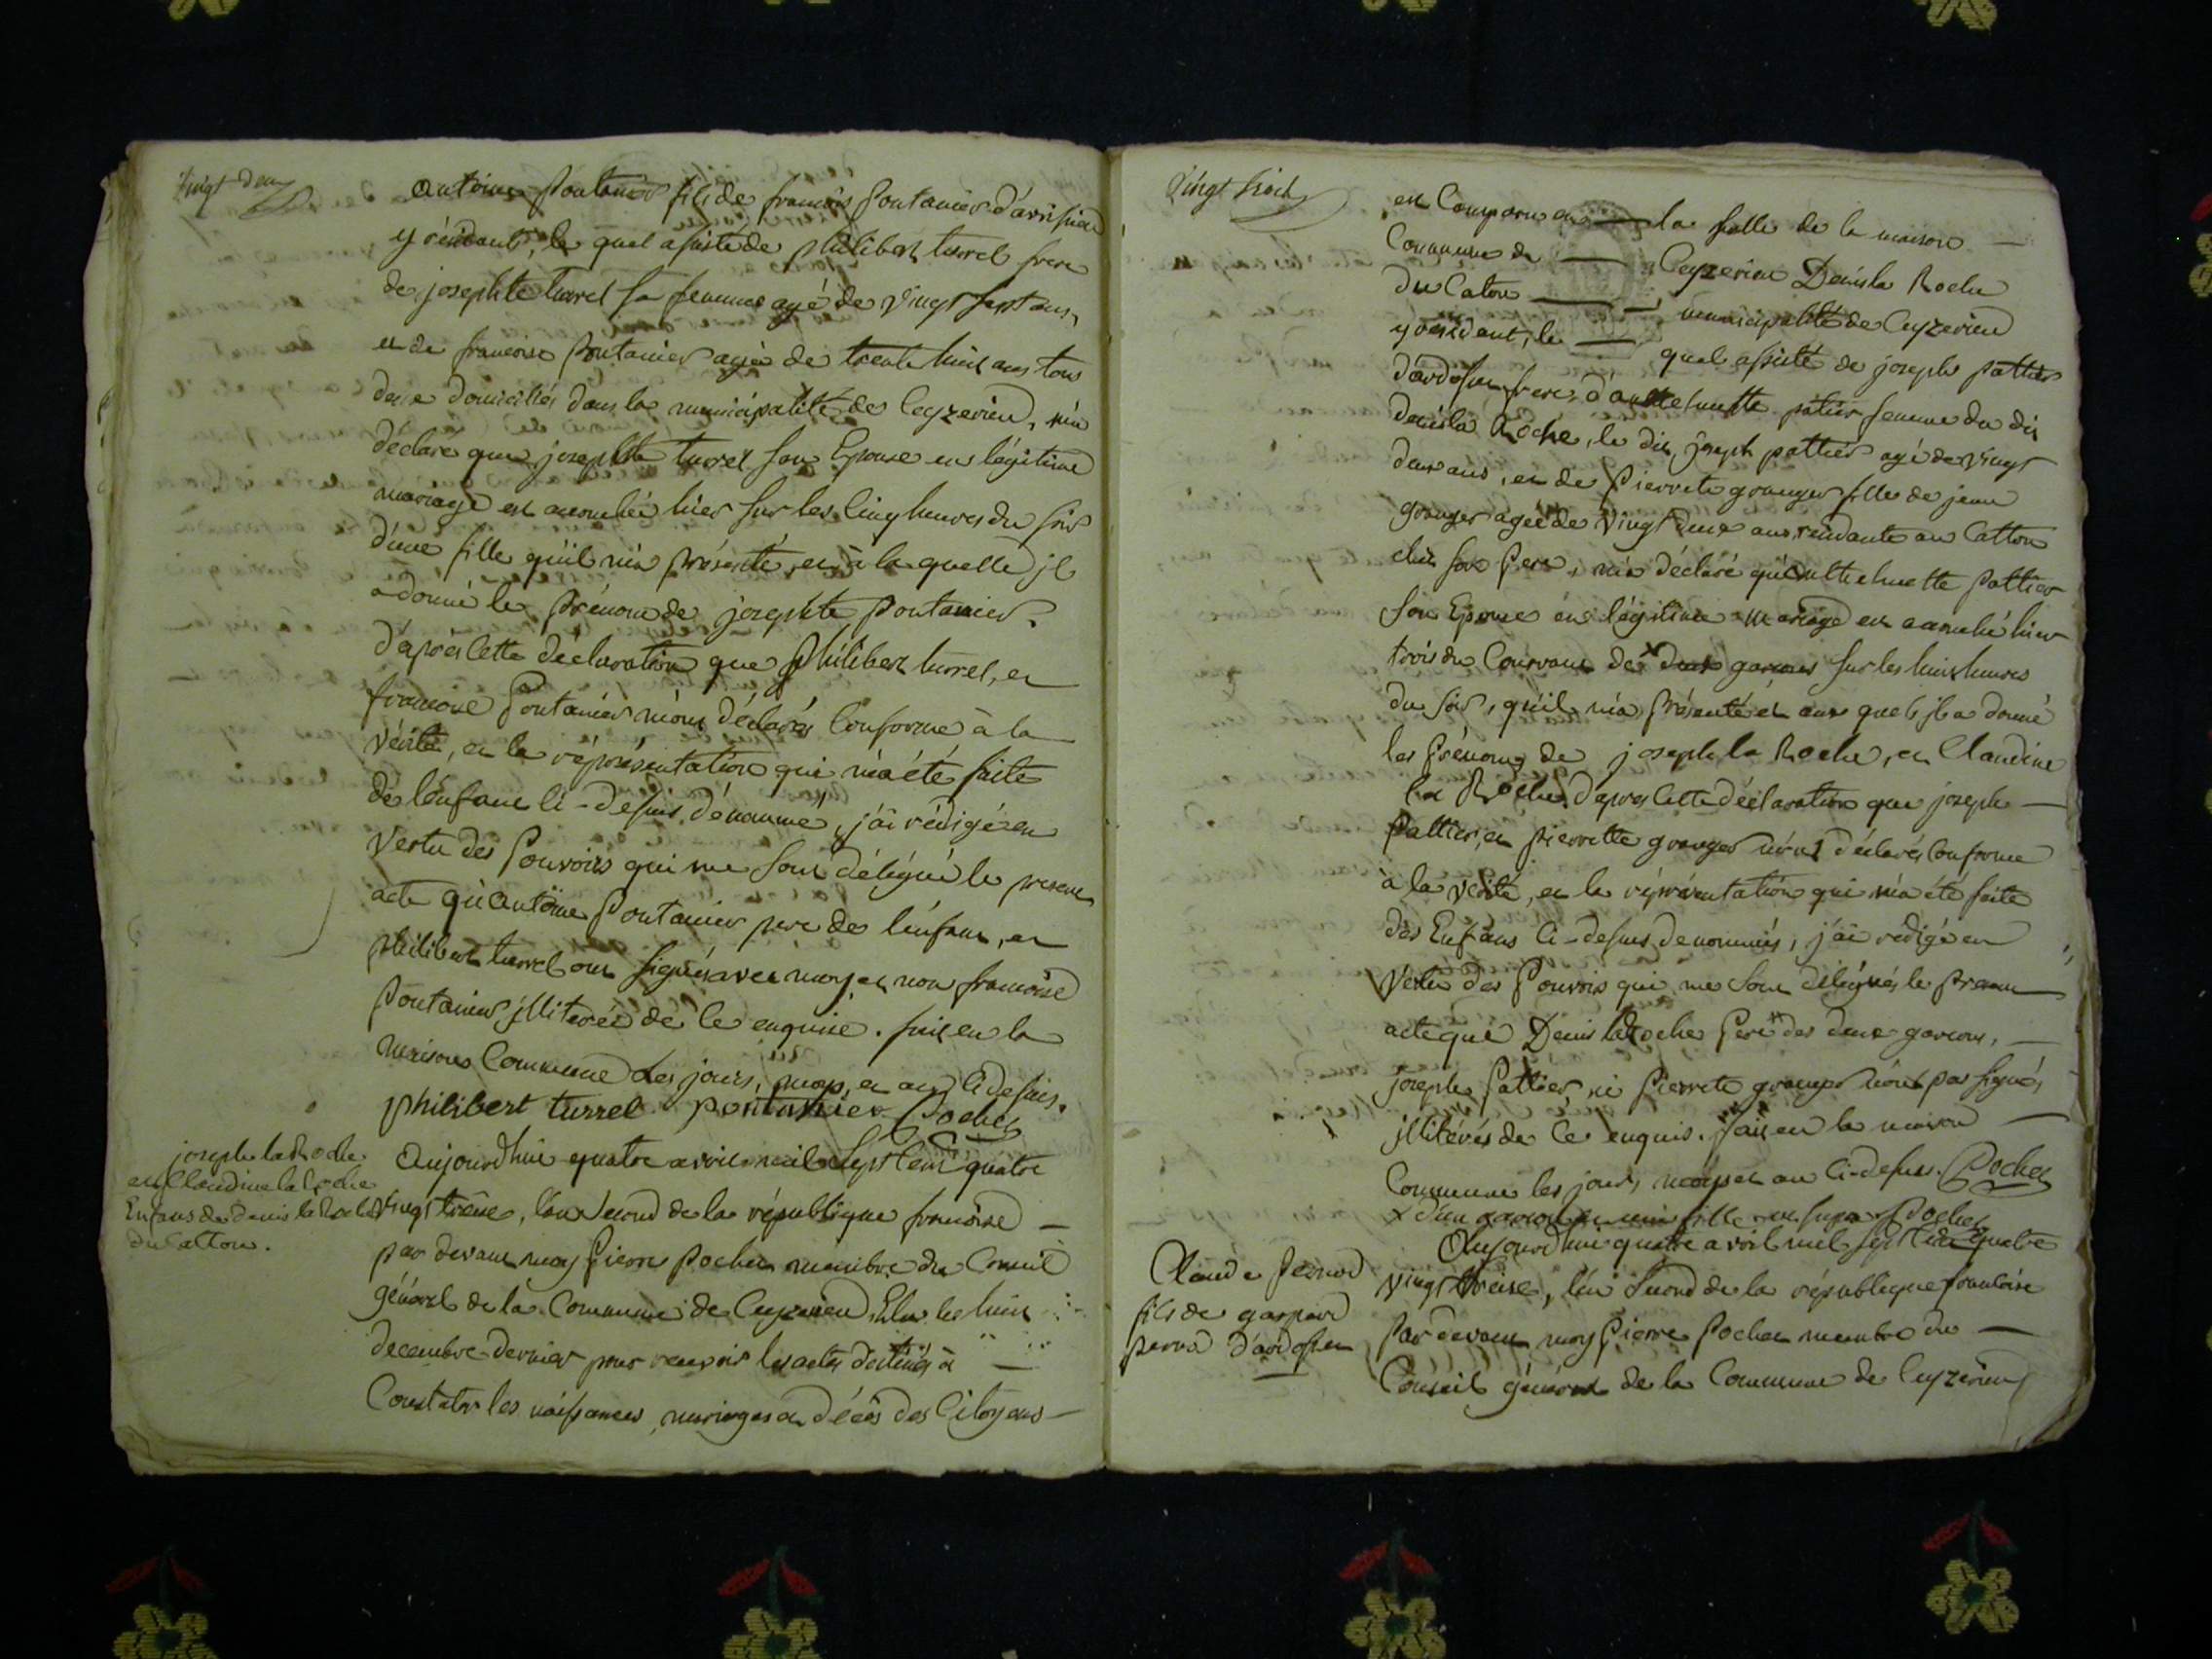 vingt deux
Antoine Pontanier fils de francois Pontanier d'avrissieu
y résidant, le quel assisté de philibert turrel frere
de josephte turrel sa femme agé de vingt sept ans,
et de francoise Pontanier agée de trente huit ans tous
deux domiciliés dans la municipalité de Ceyzerieu, m'a
déclaré que josephte turrel son Epouse en légitime
mariage est acouchée hier sur les cinq heures du soir
d'une fille qu'il m'a présenté, et à la quelle jl
a donné le prénom de josephte Pontanier.
d'après cette déclaration que philibert turrel, et
francoise Pontanier m'ont déclarés conforme à la
vérité, et la réprésentation qui m'a été faite
de l'enfant ci-dessus dénommé, j'ai rédigé en
vertu des pouvoirs qui me sont délégué le present
acte qu'antoine Pontanier pere de l'enfant, et
philibert turrel ont signés avec moy et non francoise
Pontanier jlliterée de ce enquise. fait en la
maison Commune les jours, moys, et an ci dessus.
philibert turrel pontanier Pochet
joseph la Roche
et Claudine la Roche
Enfans de denis la Roche
du catton.
Aujourd'hui quatre avril mil sept cent quatre
vingt treize, l'an second de la république francoise
par devant moy Pierre Pochet membre du Conseil
général de la Commune de Ceyzerieu Elu le huit
decembre dernier pour recevoir les actes destinés à
Constater les naissances, mariages et décès des Citoyens
vingt trois
est Comparu en la salle de la maison
Commune de Ceyzerieu Denis la Roche
du Caton municipalité de Ceyzerieu
y résidant, le quel assisté de joseph pattier
d'ardosset frere d'anthelmette patier femme du dit
denis la Roche, le dit joseph pattier agé de vingt
deux ans, et de Pierrete granger fille de jean
granger agée de vingt deux ans, résidante au Catton
chez son pere, m'a déclaré qu'anthelmette Pattier
son Epouse en légitime mariage est acouchée hier
trois du Courant de x deux garcons sur les huit heures
du soir, qu'il m'a présenté et aux quels jl a donné
les prénoms de joseph la Roche, et Claudine
la Roche, d'après cette déclaration que joseph
Pattier, et pierrette granger m'ont déclarés conforme
à la vérité, et la réprésentation qui m'a été faite
des Enfans ci-dessus denommés, j'ai redigé en
Vertu des Pouvoirs qui me sont délégués le present
acte que Denis la Roche Pere des deux garcons,
joseph Pattier, ni Pierrete granger n'ont pas signé,
jllitérés de ce enquis. fait en la maison
Commune les jours, moys et an ci-dessus. Pochet
x d'un garcon et une fille Pochet
Claude Pernod
fils de gaspard
pernod d'ardosset
Aujourd'hui quatre avril mil sept cent quatre
vingt treize, l'an second de la république francoise
Par devant moy Pierre Pochet membre du
Conseil général de la Commune de Ceyzerieu